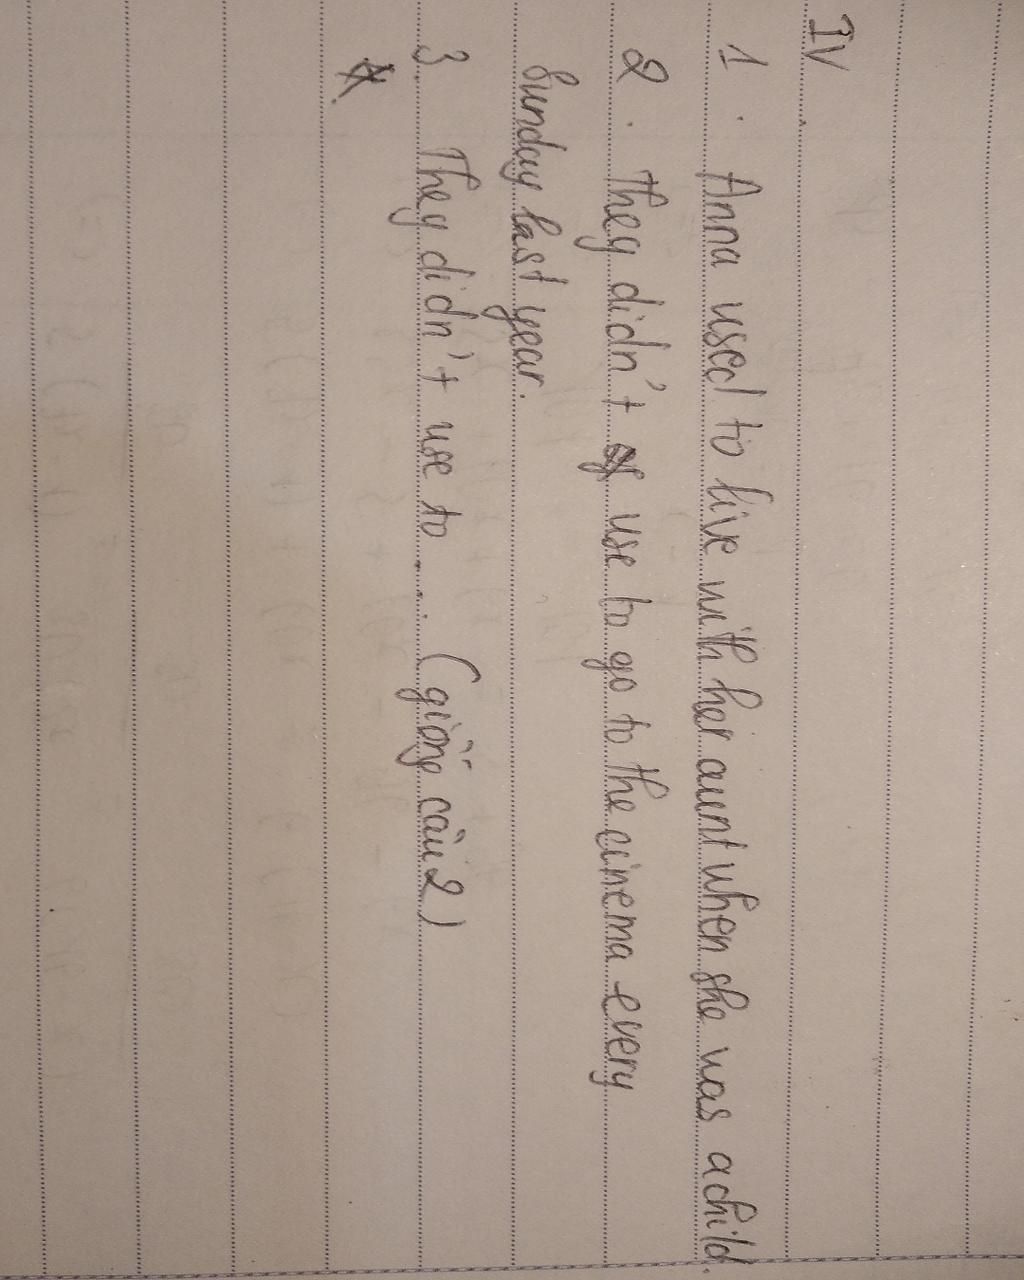 IV
1. Anna used to live with her aunt when she was a child.
2. They didn't use to go to the cinema every
Sunday last year.
3. They didn't use to .... (giống câu 2)